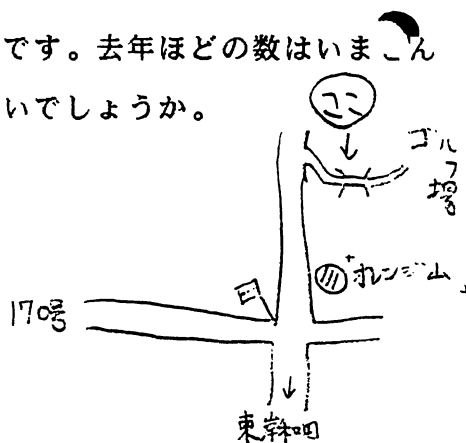 です。去年ほどの数はいません
いでしょうか。
ココ
ゴルフ場
オレンジ山
170号
東岸和田